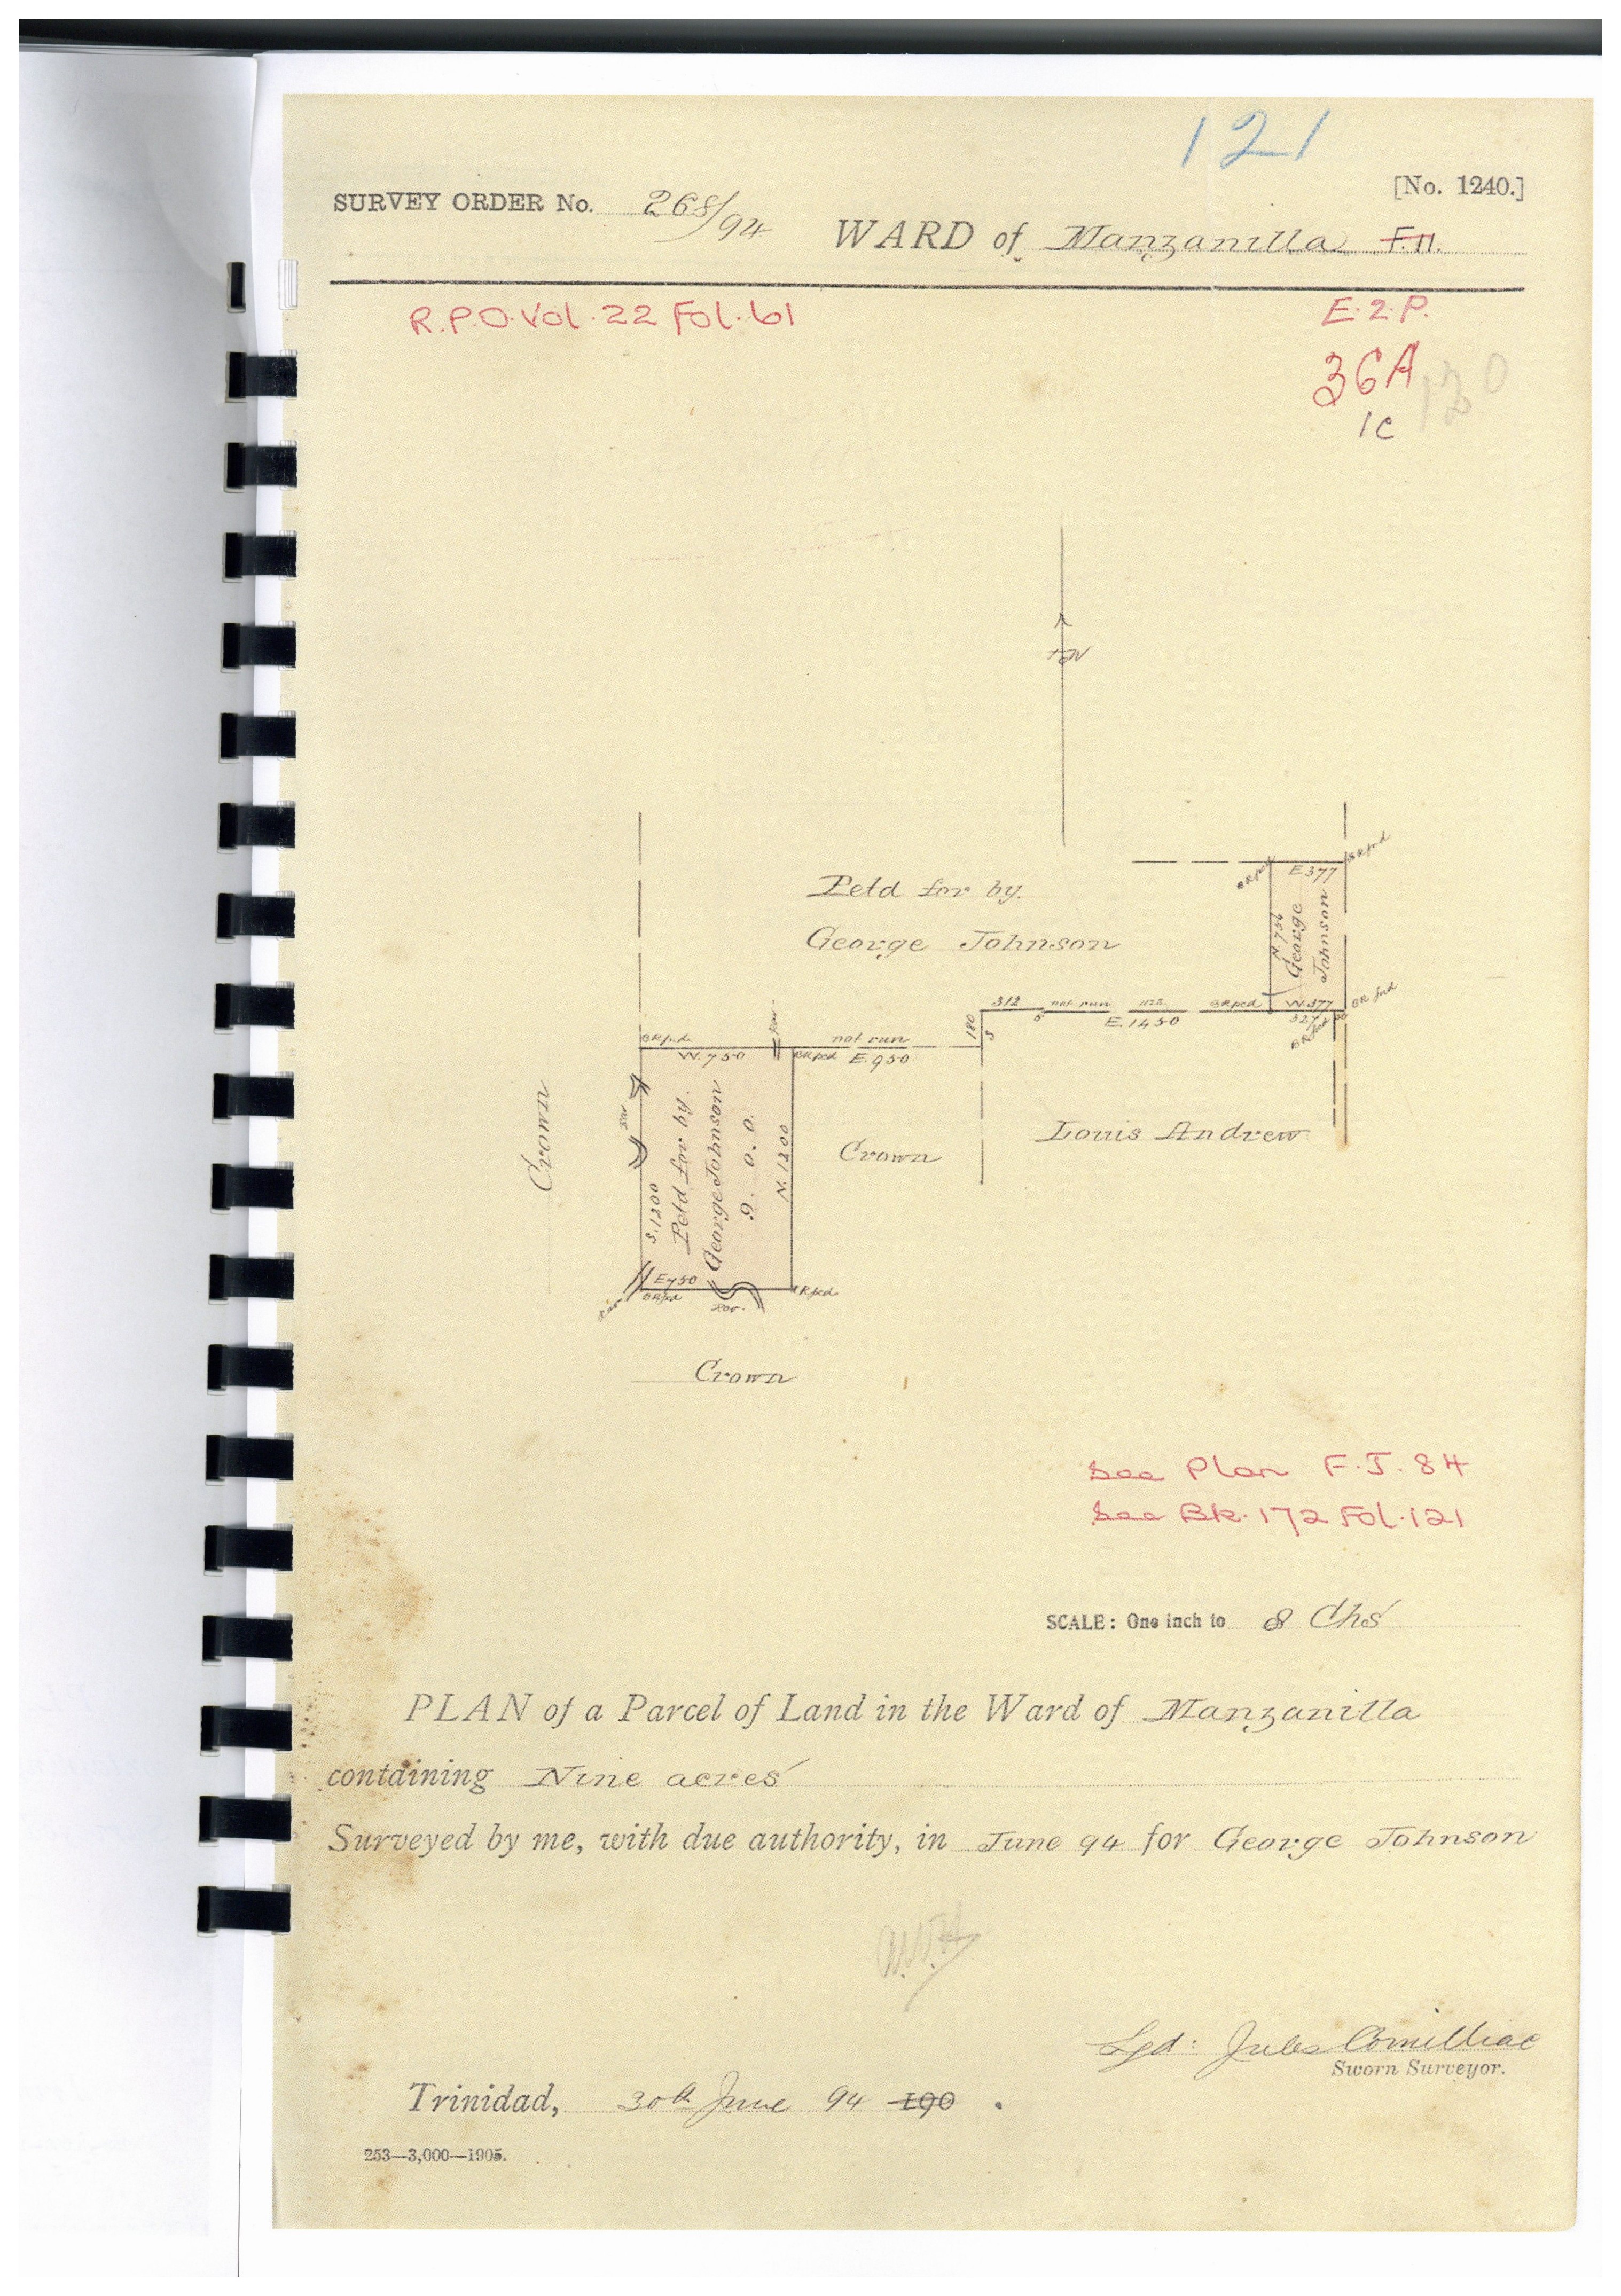 121
SURVEY ORDER No. 268/94
[No. 1240.]
WARD of Manzanilla F.11.
R.P.O. Vol. 22 Fol. 61
E.2.P.
36A
130
1c
N
BR fnd
E.377
Petd for by.
George Johnson
N.756
George
Johnson
312
not run
BR pcd
W.377
BR fnd
5
E.1450
327
180
5
Rav
BR fnd.
not run
W.750
BR pcd
E.950
Crown
Rav
S.1200
Petd for by.
George Johnson
9. 0. 0.
N.1200
Crown
Louis Andrew
E750
BR pcd
BR pcd
Rav
Rav.
Crown
See Plan F.J. 84
See Bk. 172 Fol. 121
SCALE: One inch to 8 Chs
PLAN of a Parcel of Land in the Ward of Manzanilla
containing Nine acres
Surveyed by me, with due authority, in June 94 for George Johnson
Sgd: Jules Cornilliac
Sworn Surveyor.
Trinidad, 30th June 94 190 .
253—3,000—1905.